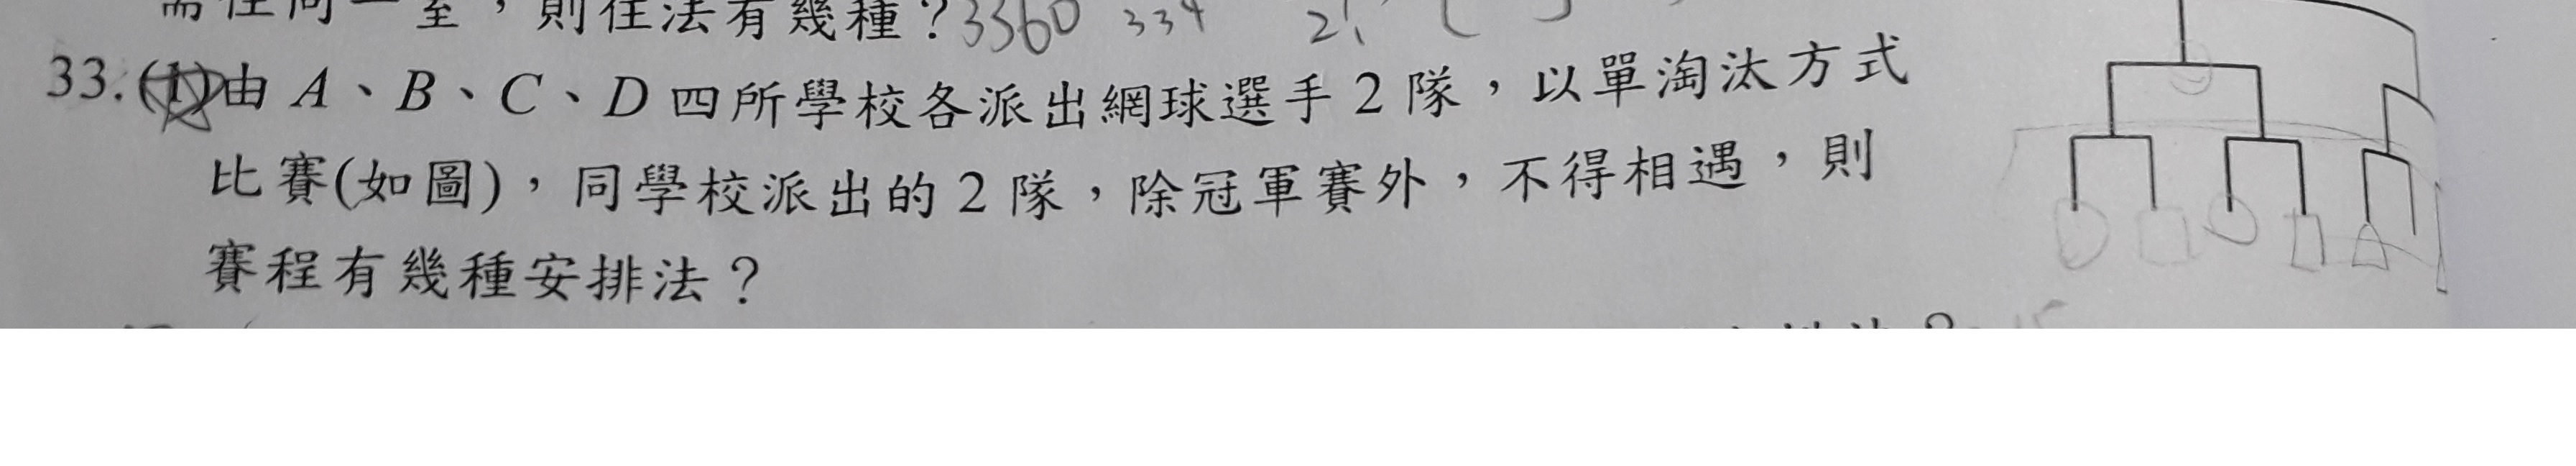 需住同一室,則住法有幾種?3360 334 2!
33.(1)由 A、B、C、D 四所學校各派出網球選手 2 隊,以單淘汰方式
比賽(如圖),同學校派出的 2 隊,除冠軍賽外,不得相遇,則
賽程有幾種安排法?